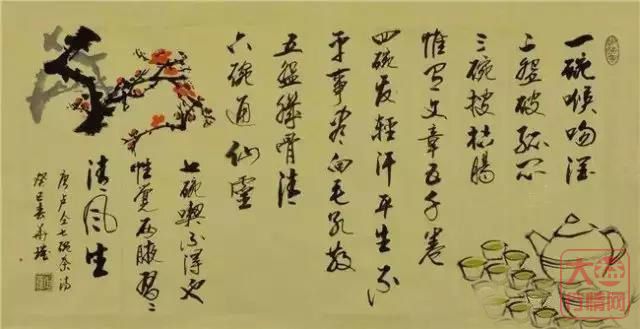 一碗喉吻润
二盌破孤闷
三碗搜枯肠
惟有文章五千卷
四碗发轻汗平生不
平事尽向毛孔散
五盌肌骨清
六碗通仙灵
七碗喫不得也
惟觉两腋习习
清风生
唐卢仝七碗茶诗
癸巳春
大益
行情网